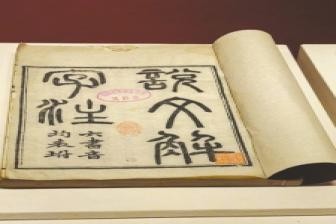 說文解
字注
六書音
均表坿